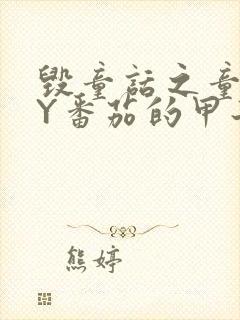 毁童话之童
Y番茄的甲
熊婷